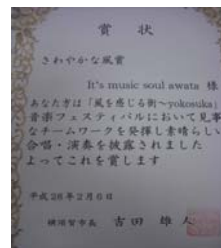 賞状
さわやかな風賞
It's music soul awata 様
あなた方は「風を感じる街～yokosuka」
音楽フェスティバルにおいて見事
なチームワークを発揮し素晴らしい
合唱・演奏を披露されました
よってこれを賞します
平成26年2月6日
横須賀市長 吉田雄人